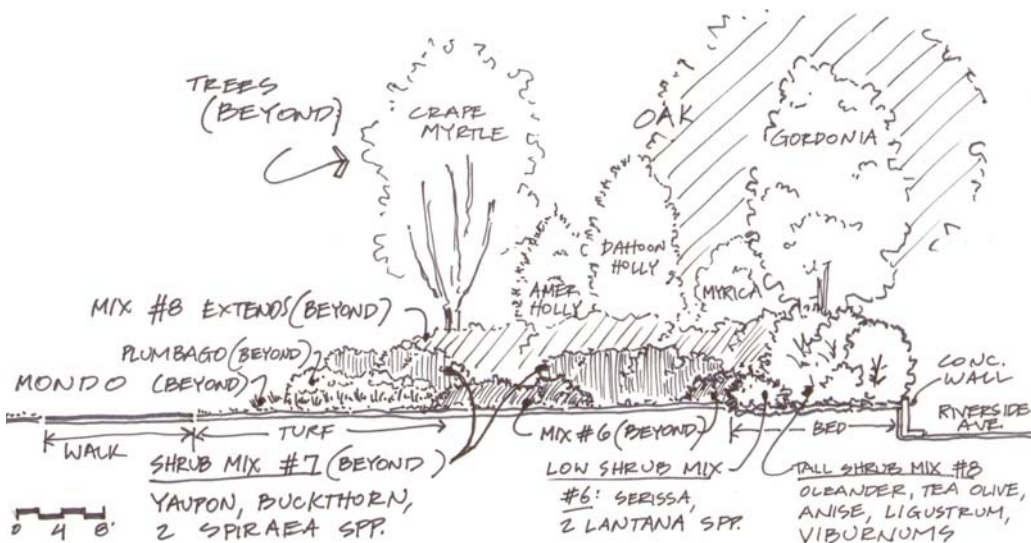 TREES
(BEYOND)
CRAPE
MYRTLE
OAK
GORDONIA
DAHOON
HOLLY
AMER
HOLLY
MYRICA
MIX #8 EXTENDS (BEYOND)
PLUMBAGO (BEYOND)
MONDO (BEYOND)
CONC.
WALL
RIVERSIDE
AVE.
WALK
TURF
MIX #6 (BEYOND)
BED
SHRUB MIX #7 (BEYOND)
YAUPON, BUCKTHORN,
2 SPIRAEA SPP.
LOW SHRUB MIX
#6: SERISSA,
2 LANTANA SPP.
TALL SHRUB MIX #8
OLEANDER, TEA OLIVE,
ANISE, LIGUSTRUM,
VIBURNUMS
0 4 8'